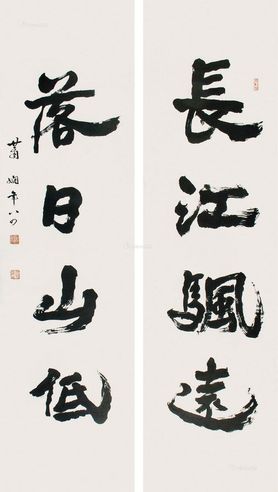 長江颿遠
落日山低
蕭嫻年八